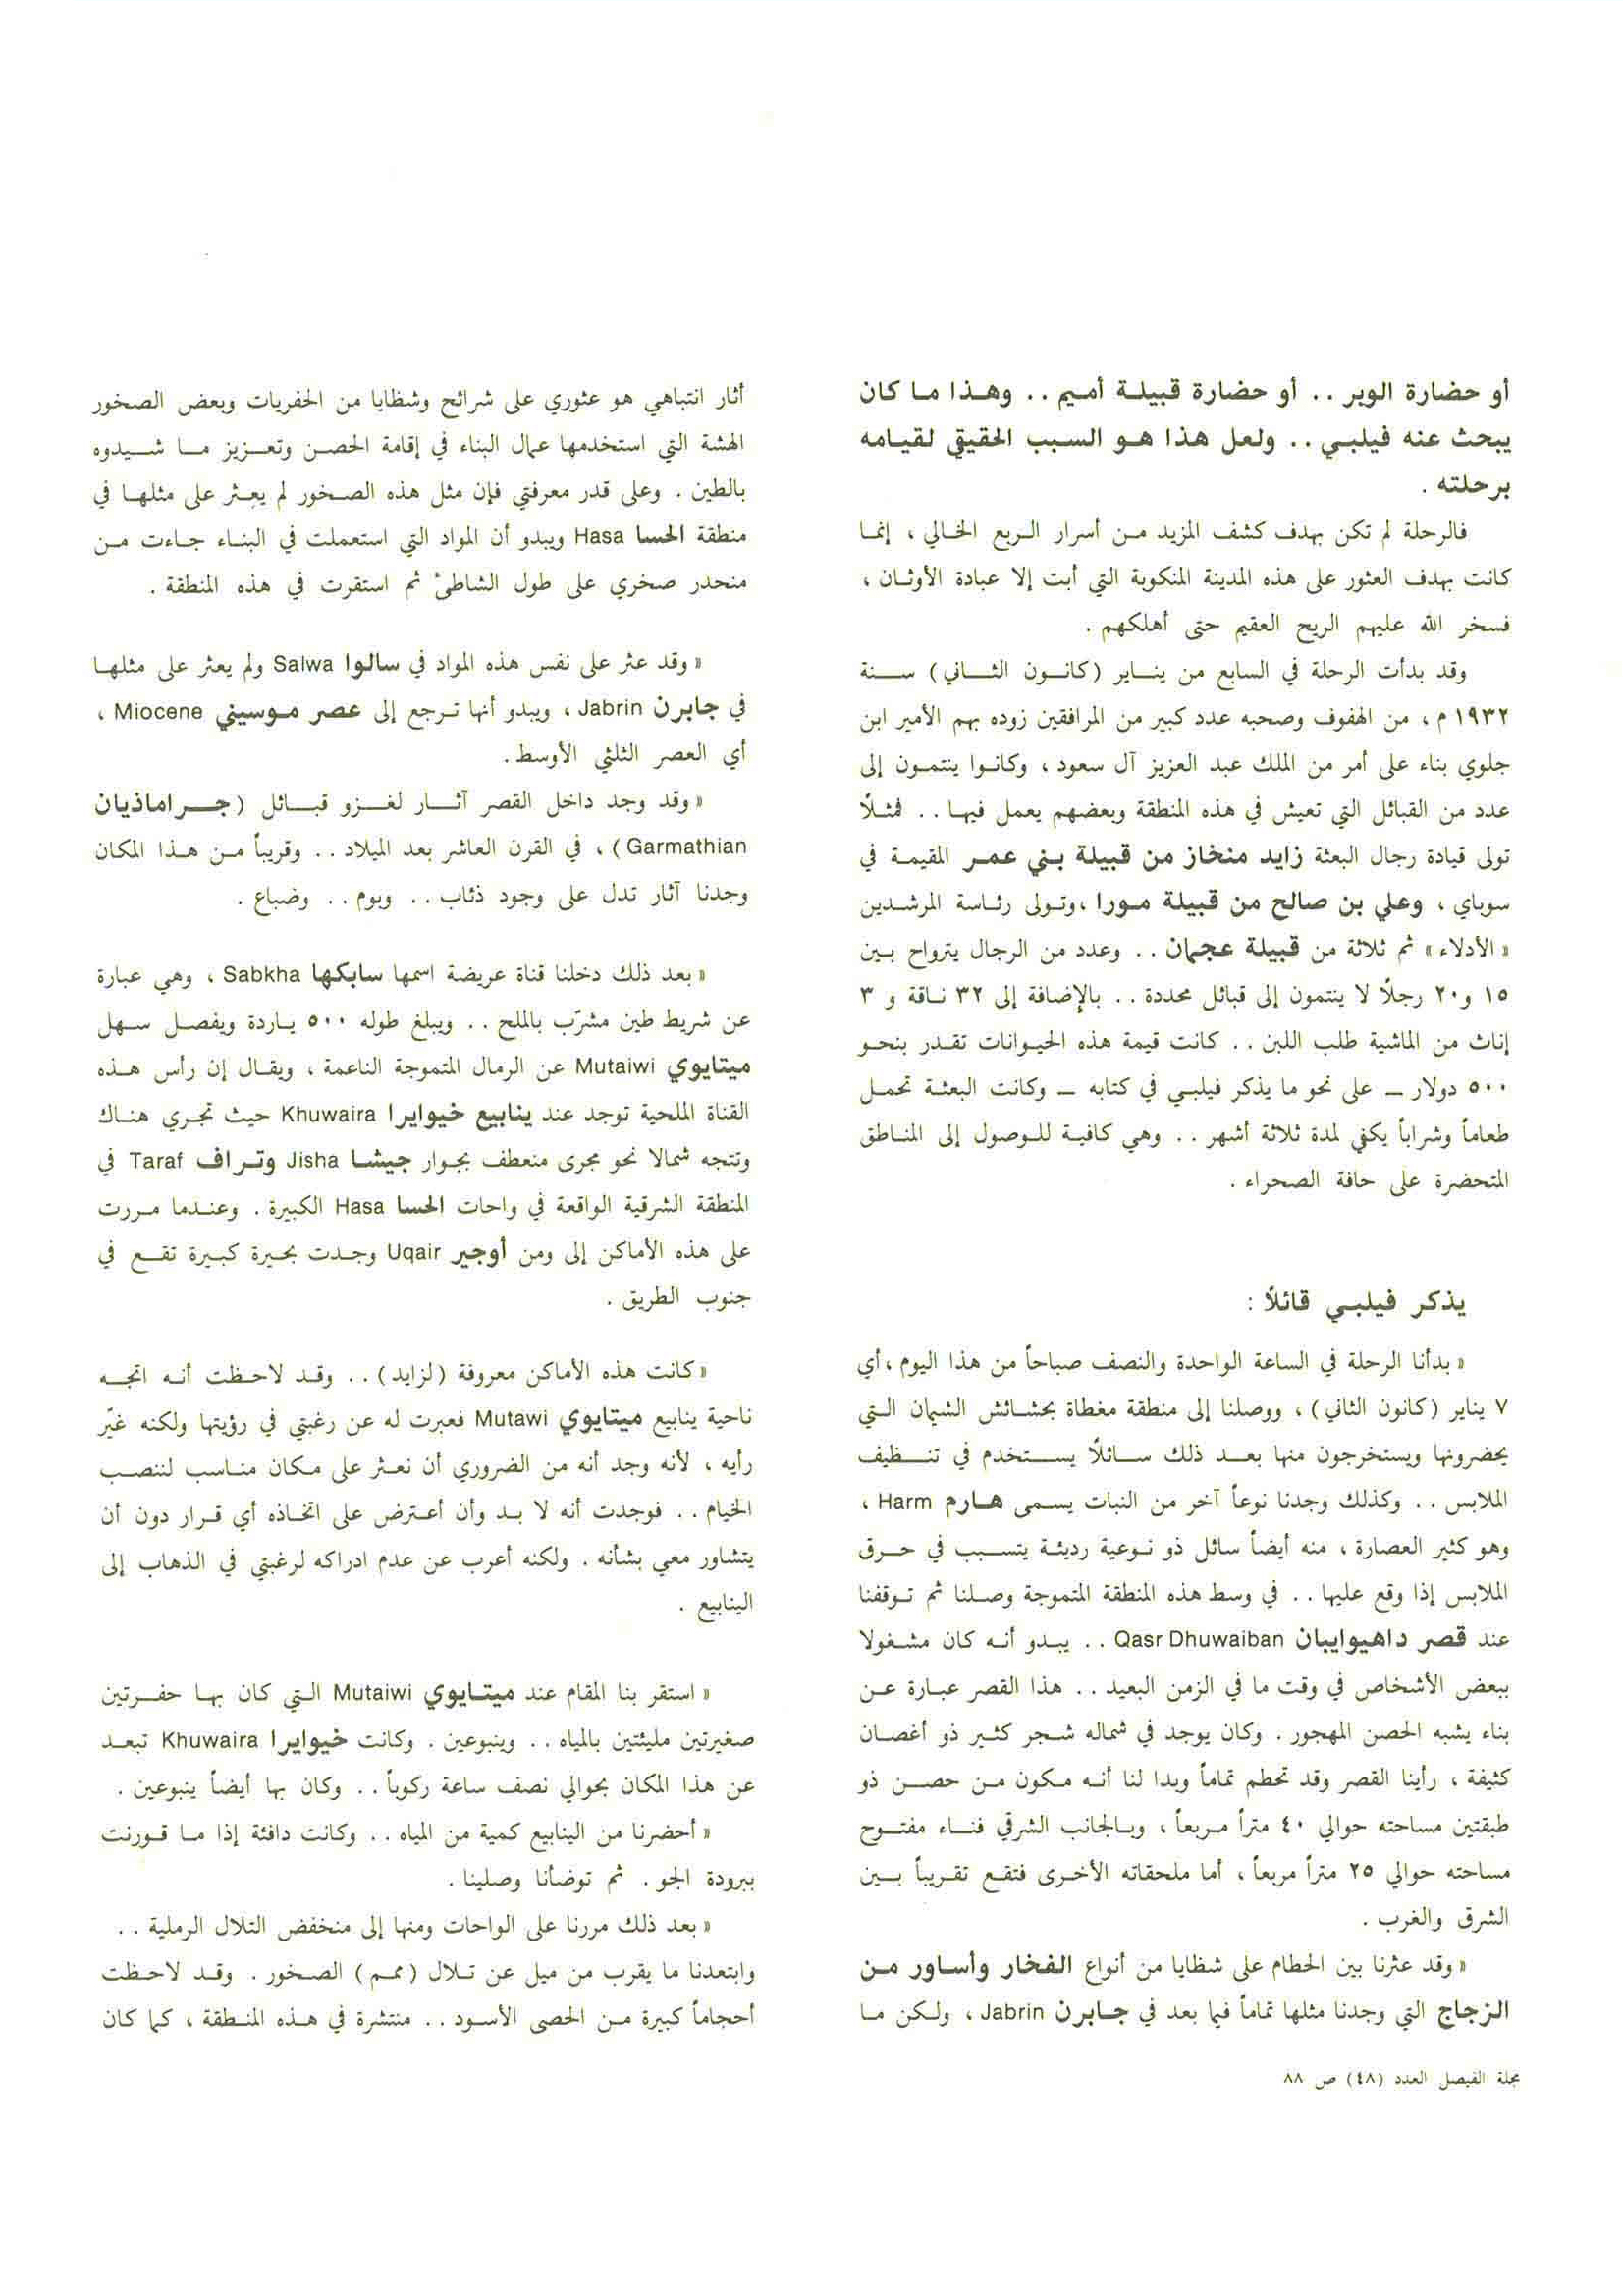 أو حضارة الوبر .. أو حضارة قبيلة أميم .. وهذا ما كان
يبحث عنه فيلبي .. ولعل هذا هو السبب الحقيقي لقيامه
برحلته .
فالرحلة لم تكن بهدف كشف المزيد من أسرار الربع الخالي ، إنما
كانت بهدف العثور على هذه المدينة المنكوبة التي أبت إلا عبادة الأوثان ،
فسخر الله عليهم الريح العقيم حتى أهلكهم .
وقد بدأت الرحلة في السابع من يناير (كانون الثاني) سنة
١٩٣٢ م ، من الهفوف وصحبه عدد كبير من المرافقين زوده بهم الأمير ابن
جلوي بناء على أمر من الملك عبد العزيز آل سعود ، وكانوا ينتمون إلى
عدد من القبائل التي تعيش في هذه المنطقة وبعضهم يعمل فيها .. فمثلاً
تولى قيادة رجال البعثة زايد منخاز من قبيلة بني عمر المقيمة في
سوباي ، وعلي بن صالح من قبيلة مورا ، وتولى رئاسة المرشدين
« الأدلاء » ثم ثلاثة من قبيلة عجمان .. وعدد من الرجال يترواح بين
١٥ و٢٠ رجلاً لا ينتمون إلى قبائل محددة .. بالإضافة إلى ٣٢ ناقة و ٣
إناث من الماشية طلب اللبن .. كانت قيمة هذه الحيوانات تقدر بنحو
٥٠٠ دولار – على نحو ما يذكر فيلبي في كتابه – وكانت البعثة تحمل
طعاماً وشراباً يكفي لمدة ثلاثة أشهر .. وهي كافية للوصول إلى المناطق
المتحضرة على حافة الصحراء .
يذكر فيلبي قائلاً :
« بدأنا الرحلة في الساعة الواحدة والنصف صباحاً من هذا اليوم ، أي
٧ يناير (كانون الثاني) ، ووصلنا إلى منطقة مغطاة بحشائش الشيمان التي
يحضرونها ويستخرجون منها بعد ذلك سائلاً يستخدم في تنظيف
الملابس .. وكذلك وجدنا نوعاً آخر من النبات يسمى هارم Harm ،
وهو كثير العصارة ، منه أيضاً سائل ذو نوعية رديئة يتسبب في حرق
الملابس إذا وقع عليها .. في وسط هذه المنطقة المتموجة وصلنا ثم توقفنا
عند قصر داهيوايبان Qasr Dhuwaiban .. يبدو أنه كان مشغولا
ببعض الأشخاص في وقت ما في الزمن البعيد .. هذا القصر عبارة عن
بناء يشبه الحصن المهجور . وكان يوجد في شماله شجر كثير ذو أغصان
كثيفة ، رأينا القصر وقد تحطم تماماً وبدا لنا أنه مكون من حصن ذو
طبقتين مساحته حوالي ٤٠ متراً مربعاً ، وبالجانب الشرقي فناء مفتوح
مساحته حوالي ٢٥ متراً مربعاً ، أما ملحقاته الأخرى فتقع تقريباً بين
الشرق والغرب .
« وقد عثرنا بين الحطام على شظايا من أنواع الفخار وأساور من
الزجاج التي وجدنا مثلها تماماً فيما بعد في جابرن Jabrin ، ولكن ما
أثار انتباهي هو عثوري على شرائح وشظايا من الحفريات وبعض الصخور
الهشة التي استخدمها عمال البناء في إقامة الحصن وتعزيز ما شيدوه
بالطين . وعلى قدر معرفتي فإن مثل هذه الصخور لم يعثر على مثلها في
منطقة الحسا Hasa ويبدو أن المواد التي استعملت في البناء جاءت من
منحدر صخري على طول الشاطئ ثم استقرت في هذه المنطقة .
« وقد عثر على نفس هذه المواد في سالوا Salwa ولم يعثر على مثلها
في جابرن Jabrin ، ويبدو أنها ترجع إلى عصر موسيني Miocene ،
أي العصر الثلثي الأوسط .
« وقد وجد داخل القصر آثار لغزو قبائل (جراماذيان
Garmathian) ، في القرن العاشر بعد الميلاد .. وقريباً من هذا المكان
وجدنا آثار تدل على وجود ذئاب .. وبوم .. وضباع .
« بعد ذلك دخلنا قناة عريضة اسمها سابكها Sabkha ، وهي عبارة
عن شريط طين مشرّب بالملح .. ويبلغ طوله ٥٠٠ ياردة ويفصل سهل
ميتايوي Mutaiwi عن الرمال المتموجة الناعمة ، ويقال إن رأس هذه
القناة الملحية توجد عند ينابيع خيوايرا Khuwaira حيث تجري هناك
وتتجه شمالا نحو مجرى منعطف بجوار جيشا Jisha وتراف Taraf في
المنطقة الشرقية الواقعة في واحات الحسا Hasa الكبيرة . وعندما مررت
على هذه الأماكن إلى ومن أوجير Uqair وجدت بحيرة كبيرة تقع في
جنوب الطريق .
« كانت هذه الأماكن معروفة (لزايد) .. وقد لاحظت أنه اتجه
ناحية ينابيع ميتايوي Mutawi فعبرت له عن رغبتي في رؤيتها ولكنه غيّر
رأيه ، لأنه وجد أنه من الضروري أن نعثر على مكان مناسب لننصب
الخيام .. فوجدت أنه لا بد وأن أعترض على اتخاذه أي قرار دون أن
يتشاور معي بشأنه . ولكنه أعرب عن عدم ادراكه لرغبتي في الذهاب إلى
الينابيع .
« استقر بنا المقام عند ميتايوي Mutaiwi التي كان بها حفرتين
صغيرتين مليئتين بالمياه .. وينبوعين . وكانت خيوايرا Khuwaira تبعد
عن هذا المكان بحوالي نصف ساعة ركوباً .. وكان بها أيضاً ينبوعين .
« أحضرنا من الينابيع كمية من المياه .. وكانت دافئة إذا ما قورنت
ببرودة الجو . ثم توضأنا وصلينا .
« بعد ذلك مررنا على الواحات ومنها إلى منخفض التلال الرملية ..
وابتعدنا ما يقرب من ميل عن تلال (ممم) الصخور . وقد لاحظت
أحجاماً كبيرة من الحصى الأسود .. منتشرة في هذه المنطقة ، كما كان
مجلة الفيصل العدد (٤٨) ص ٨٨